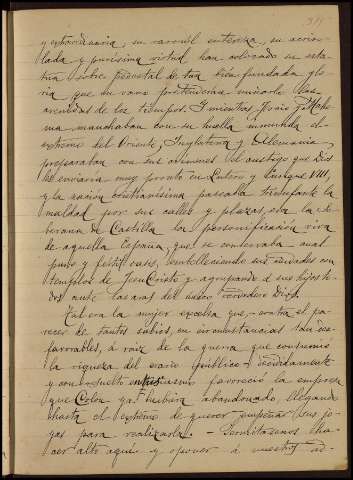 y extraordinaria, su varonil entereza, su acriso-
lada y purísima virtud han colocado su esta-
tua sobre pedestal de tan bien fundada glo-
ria que en vano pretenderán minarle las
avenidas de los tiempos. Y mientras
manchaban con su huella inmunda el
extremo del Oriente, Inglaterra y Alemania,
preparaban con sus crímenes el castigo que Dios
les enviaría muy pronto en Lutero y Enrique VIII,
y la nación cristianísima paseaba triunfante la
maldad por sus calles y plazas, era la So-
berana de Castilla la personificación viva
de aquella España, que se conservaba cual
puro y fértil oasis, embelleciendo sus ciudades con
templos de Jesu Cristo y agrupando á sus hijos to-
dos ante las aras del único verdadero Dios.
Tal era la mujer excelsa que, contra el pa-
recer de tantos sabios, en circunstancias tan des-
favorables, á raíz de la guerra que consumió
la riqueza del erario público, decididamente
y con resuelto entusiasmo favoreció la empresa
que Colon ya hubiera abandonado, llegando
hasta el extremo de querer empeñar sus jo-
yas para realizarla. - Permítasenos ha-
cer alto aquí y oponer á nuestro ad-